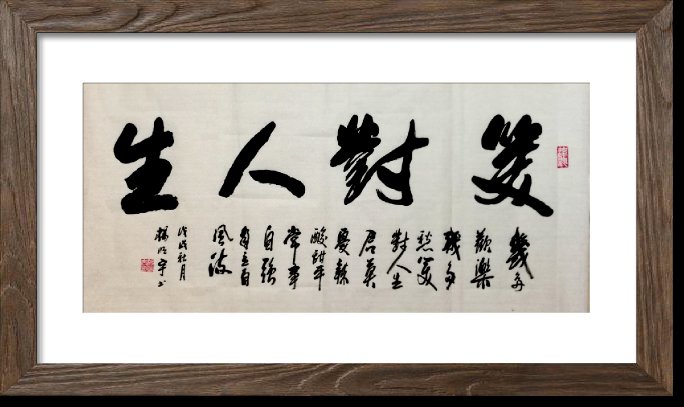 笑對人生
幾多
歡樂
幾多
愁笑
對人生
君莫
憂
酸甜平
常事
自強
自立自
風流
戊戌秋月
書